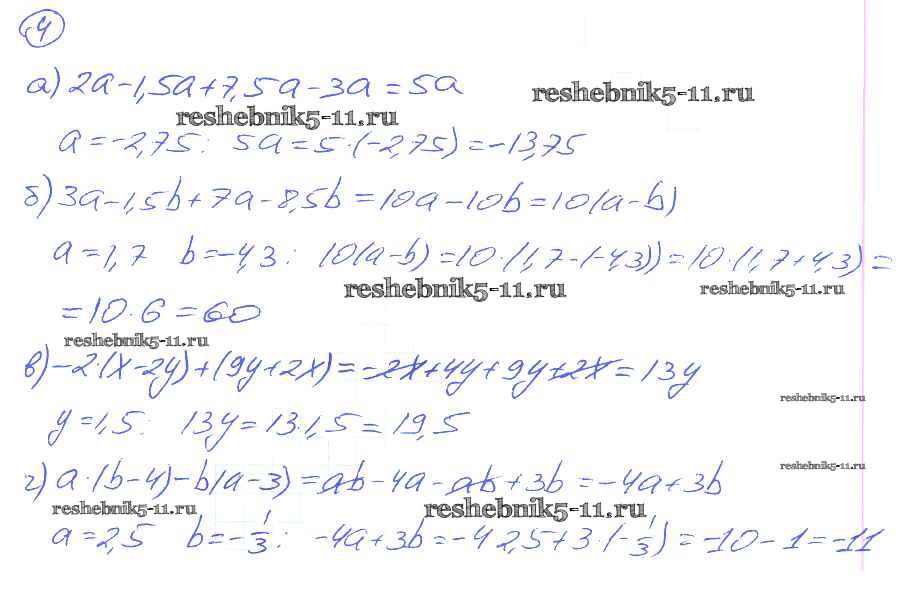 4
а) 2a-1,5a+7,5a-3a=5a
reshebnik5-11.ru
reshebnik5-11.ru
a=-2,75: 5a=5·(-2,75)=-13,75
б) 3a-1,5b+7a-8,5b=10a-10b=10(a-b)
a=1,7 b=-4,3: 10(a-b)=10·(1,7-(-4,3))=10·(1,7+4,3)=
reshebnik5-11.ru
reshebnik5-11.ru
=10·6=60
reshebnik5-11.ru
в) -2·(x-2y)+(9y+2x)=-2x+4y+9y+2x=13y
reshebnik5-11.ru
y=1,5: 13y=13·1,5=19,5
reshebnik5-11.ru
г) a·(b-4)-b(a-3)=ab-4a-ab+3b=-4a+3b
reshebnik5-11.ru
reshebnik5-11.ru
a=2,5 b=-1/3: -4a+3b=-4 2,5+3·(-1/3)=-10-1=-11